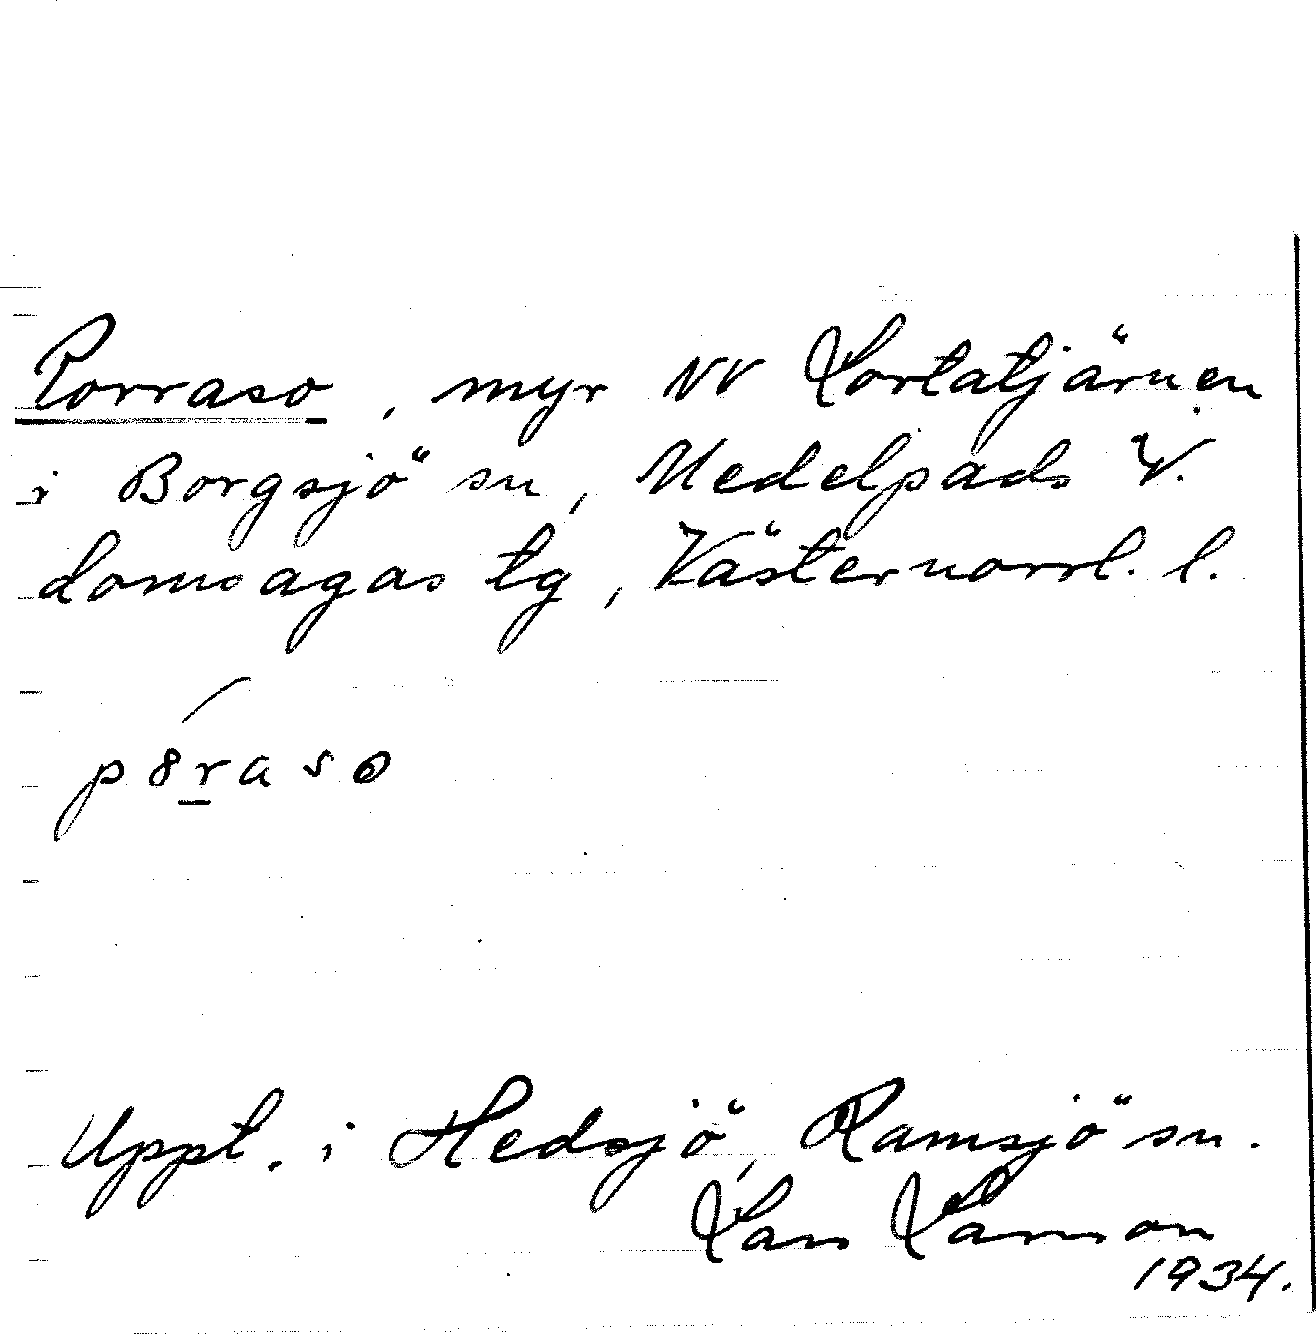 Porraso, myr NV Lortatjärnen
i Borgsjö sn, Medelpads V.
domsagas tg, Västernorrl. l.
pöraso
Uppt. i Hedsjö, Ramsjö sn.
Lars Larsson
1934.